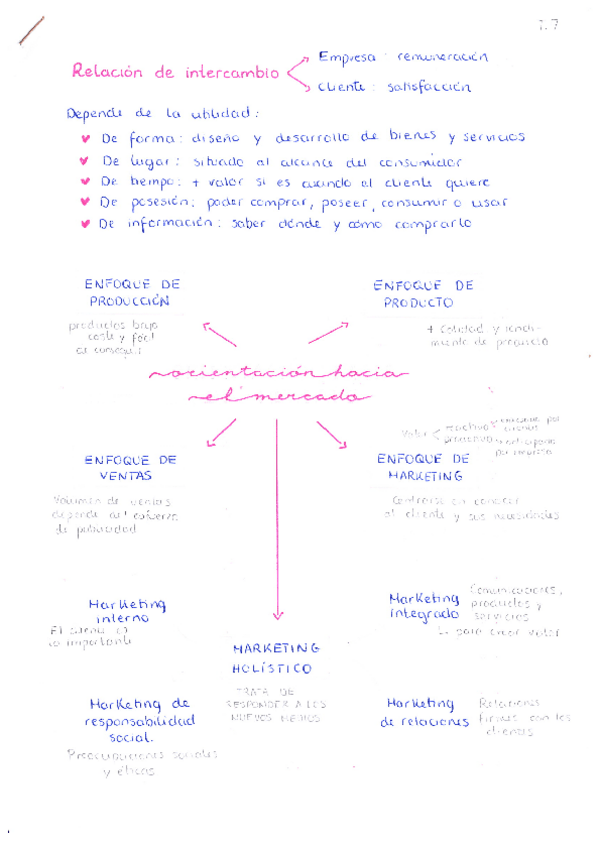 T.7
Relación de intercambio
Empresa: remuneración
Cliente: satisfacción
Depende de la utilidad:
De forma: diseño y desarrollo de bienes y servicios
De lugar: situado al alcance del consumidor
De tiempo: + valor si es cuando el cliente quiere
De posesión: poder comprar, poseer, consumir o usar
De información: saber dónde y cómo comprarlo
ENFOQUE DE
PRODUCCIÓN
productos bajo
coste y fácil
de conseguir
ENFOQUE DE
PRODUCTO
+ calidad y rendi-
miento de producto
orientación hacia
el mercado
Valor < reactivo
proactivo
por empresa
ENFOQUE DE
VENTAS
Volumen de ventas
depende del esfuerzo
de publicidad
ENFOQUE DE
MARKETING
Centrarse en conocer
al cliente y sus necesidades
Marketing
interno
El cliente es
lo importante
Marketing
integrado
Comunicaciones,
productos y
servicios
para crear valor
MARKETING
HOLÍSTICO
TRATA DE
RESPONDER A LOS
NUEVOS MEDIOS
Marketing de
responsabilidad
social.
Preocupaciones sociales
y éticas
Marketing
de relaciones
Relaciones
firmes con los
clientes